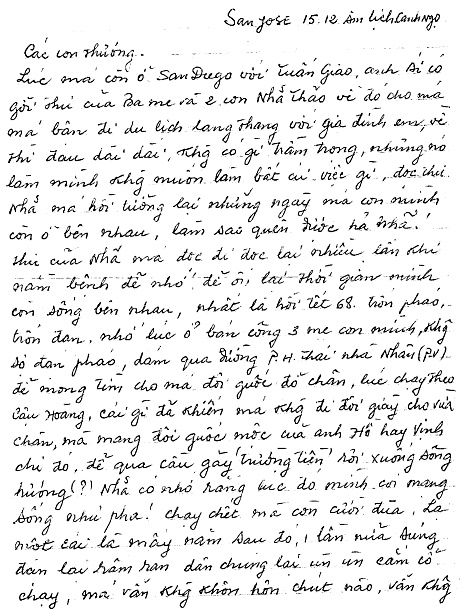 San Jose 15.12 âm lịch Canh Ngọ
Các con thương.
Lúc má còn ở San Diego với Tuấn Giao, anh Ái có
gởi thư của Ba mẹ và 2 con Nhã Thảo về đó cho má
má bận đi du lịch lang thang với gia đình em, về
thì đau dai dai, khg có gì trầm trọng, nhưng nó
làm mình khg muốn làm bất cứ việc gì, đọc thư
Nhã má hồi tưởng lại những ngày má con mình
còn ở bên nhau, làm sao quên được hả Nhã!
thư của Nhã má đọc đi đọc lại nhiều lần khi
nằm bệnh để nhớ để ôn lại thời gian mình
còn sống bên nhau, nhất là hồi tết 68. trốn pháo,
trốn đạn. nhớ lúc ở ban công 3 mẹ con mình, khg
sợ đạn pháo, dám qua đường P.H. Thái nhà Nhân (P.V)
để mong tìm cho má đôi guốc đỡ chân, lúc chạy theo
cậu Hoàng, cái gì đã khiến má khg đi đôi giày cho vừa
chân, mà mang đôi guốc mộc của anh Hồ hay Vinh
chi đó, để qua cầu gãy "trường tiền" rồi xuống sông
hương (?) Nhã có nhớ rằng lúc đó mình coi mạng
sống như pha! chạy chết mà còn cười đùa. Là
một cái là mấy năm sau đó, 1 lần nữa súng
đạn lại rầm ran dân chúng lại ùn ùn cắm cổ
chạy, má vẫn khg khôn hơn chút nào, vẫn khg